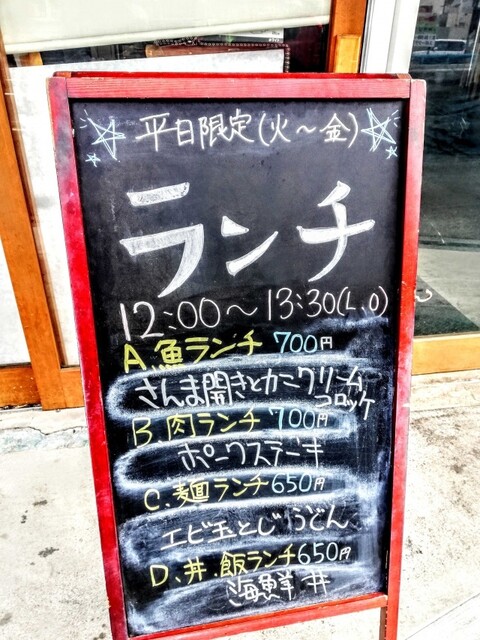 平日限定(火〜金)
ランチ
12:00〜13:30(L.O)
A.魚ランチ 700円
さんま開きとカニクリーム
コロッケ
B.肉ランチ 700円
ポークステーキ
C.麺ランチ 650円
エビ玉とじうどん
D.丼.飯ランチ 650円
海鮮丼